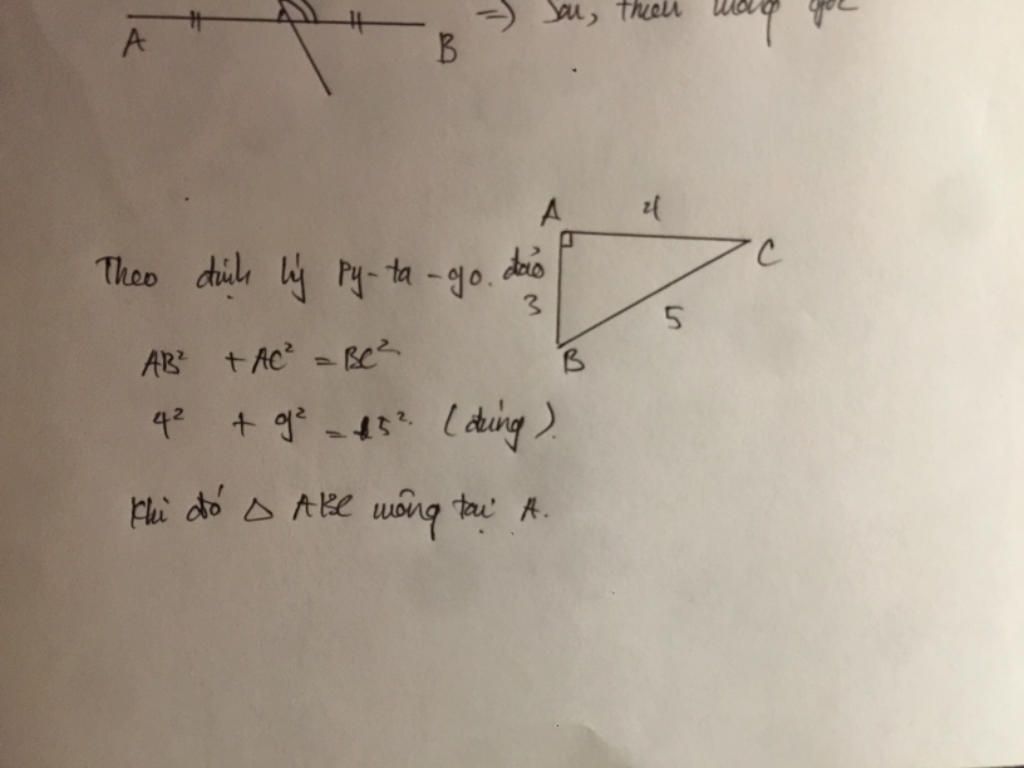 A B => Sai, thiếu vuông góc
A 4 C
Theo định lý Py-ta-go. đảo
3 5
B
AB² + AC² = BC²
4² + 9² = 15². (đúng).
Khi đó △ ABC vuông tại A.